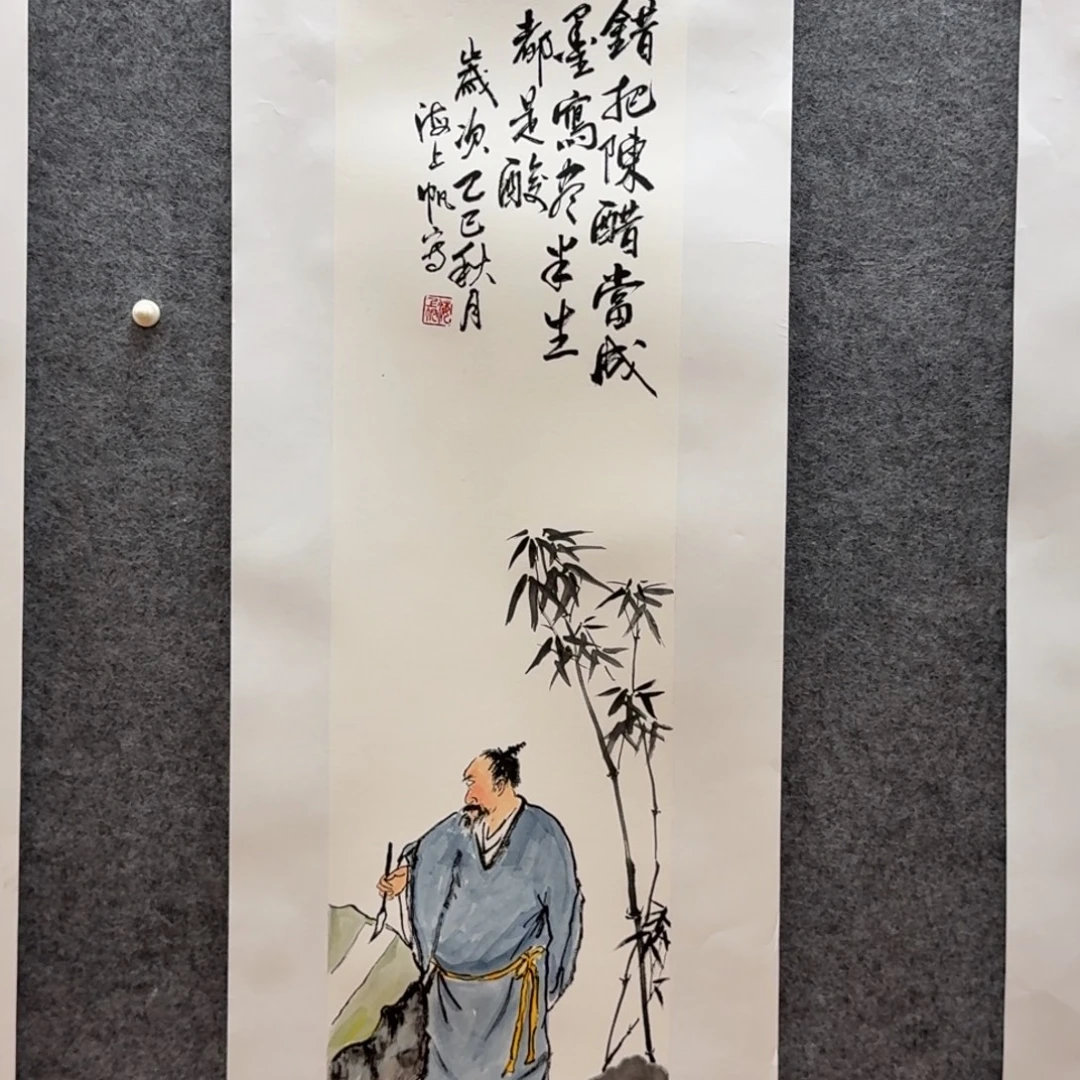 錯把陳醋當成
墨寫尽半生
都是酸
歲次乙巳秋月
海上帆寫